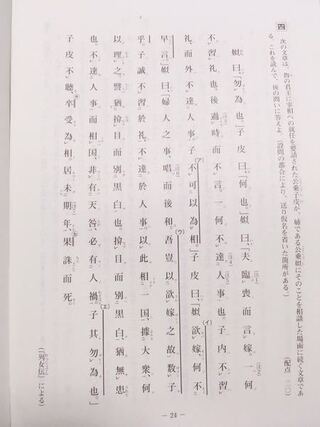 四
次の文章は、魯の君主に宰相への就任を要請された公乗子皮が、姉である公乗姒にそのことを相談した場面に続く文章であ
る。これを読んで、後の問いに答えよ。(設問の都合により、送り仮名を省いた箇所がある。)
(配点 二〇)
姒曰、「勿為也。」子皮曰、「何也。」姒曰、「夫臨喪而言嫁、一何
不習礼也。後過時而不言、一何不達人事也。子内不習
礼而外不達人事。子不可以為相。」子皮曰、「姒欲嫁、何不
早言。」姒曰、「婦人之事、唱而後和。吾豈以欲嫁之故数子
乎。子誠不習於礼、不達於人事。以此相一国、拠大衆、何
以理之。譬猶揜目而別黒白也。揜目而別黒白、猶無患
也。不達人事而相国、非有天咎、必有人禍。子其勿為也。」
子皮不聴、卒受為相。居未期年、果誅而死。
(ア)
(イ)
(ウ)
(エ)
(『列女伝』による)
― 24 ―